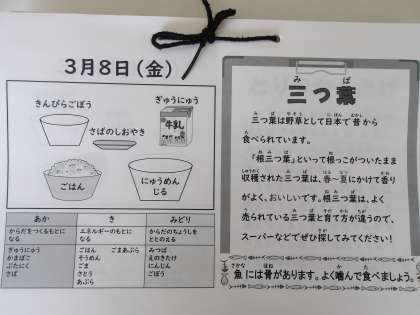 3月8日(金)
きんぴらごぼう
ぎゅうにゅう
牛乳
さばのしおやき
ごはん
にゅうめん
じる
あか
き
みどり
からだをつくるもとに
なる
エネルギーのもとに
なる
からだのちょうしを
ととのえる
ぎゅうにゅう
かまぼこ
ぶたにく
さば
ごはん ごまあぶら
そうめん
ごま
さとう
あぶら
みつば
えのきたけ
にんじん
ごぼう
三つ葉
三つ葉は野草として日本で昔から
食べられています。
「根三つ葉」といって根っこがついたまま
収穫された三つ葉は、春~夏にかけて香り
がよく、おいしいです。根三つ葉は、よく
売られている三つ葉と育て方が違うので、
スーパーなどでぜひ探してみてください!
魚には骨があります。よく噛んで食べましょう。